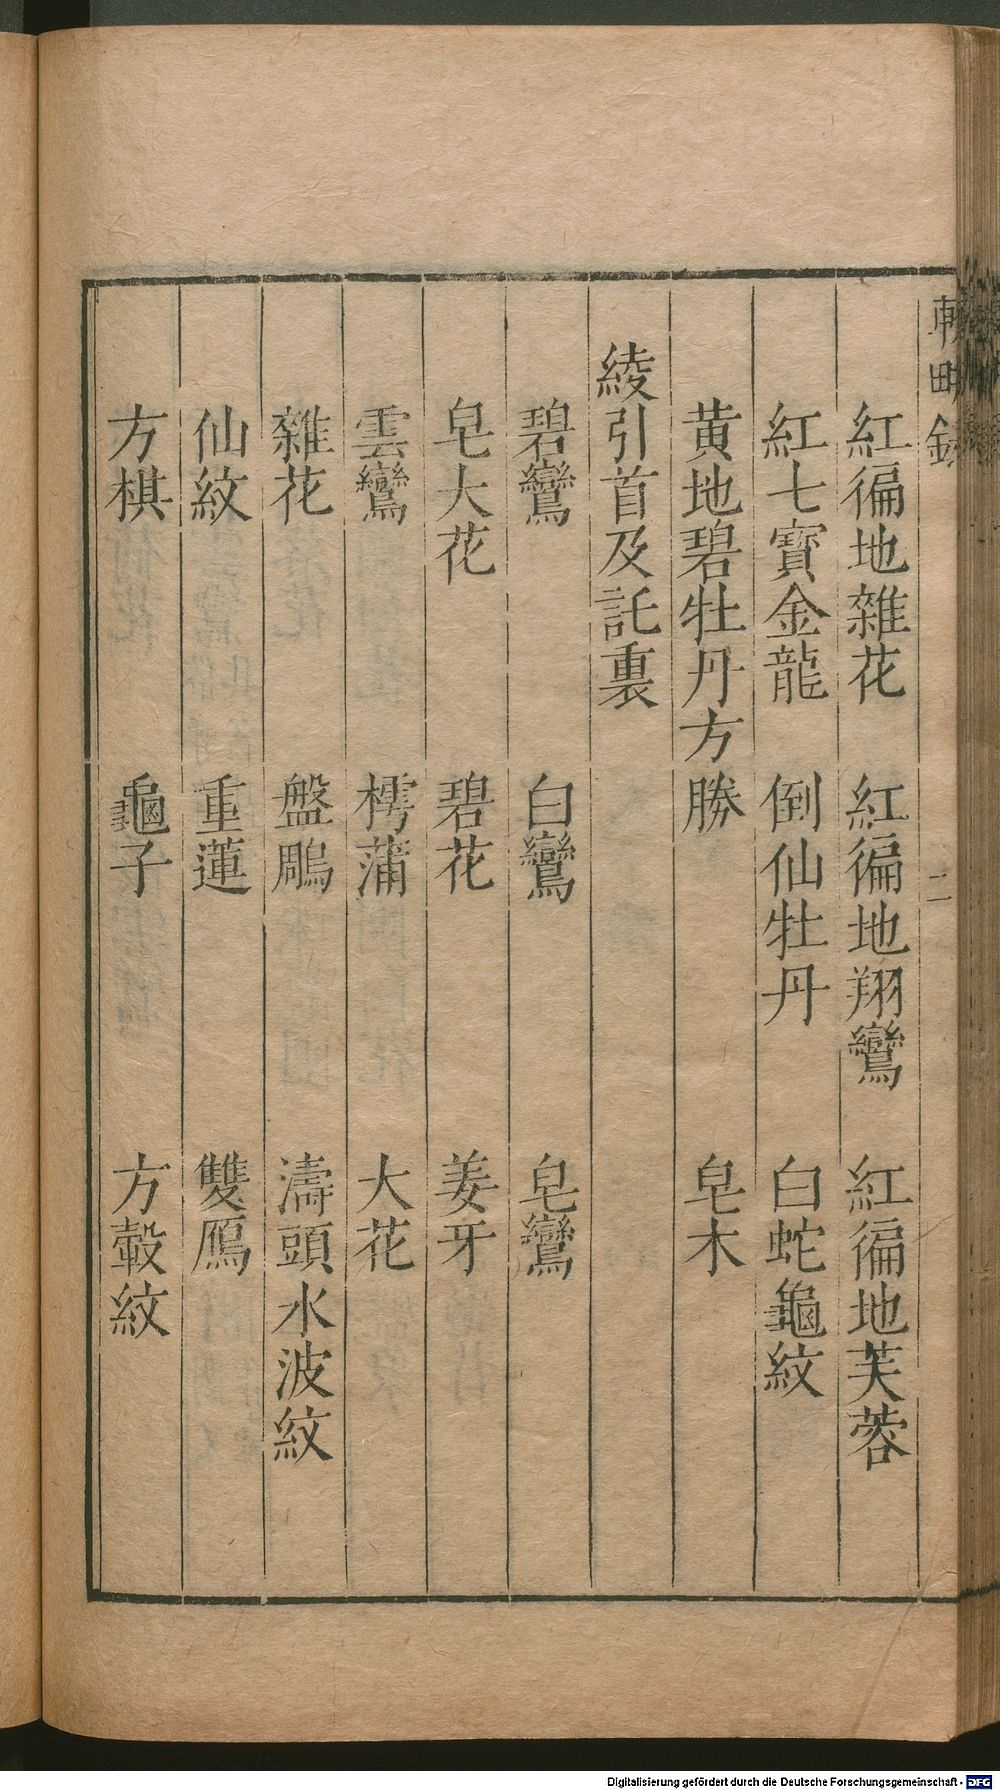 紅徧地雜花 紅徧地翔鸞 紅徧地芙蓉
紅七寶金龍 倒仙牡丹 白蛇龜紋
黄地碧牡丹方勝 皂木
綾引首及託裏
碧鸞 白鸞 皂鸞
皂大花 碧花 姜牙
雲鸞 樗蒲 大花
雜花 盤鵰 濤頭水波紋
仙紋 重蓮 雙鴈
方棋 龜子 方轂紋
二
Digitalisierung gefördert durch die Deutsche Forschungsgemeinschaft - DFG